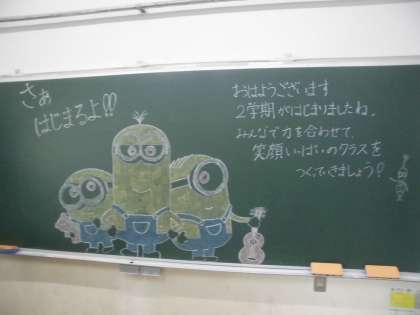 さぁ
はじまるよ!!
おはようございます
2学期がはじまりましたね。
みんなで力を合わせて、
笑顔いっぱいのクラスを
つくっていきましょう!